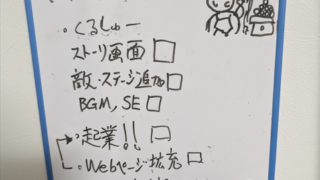 ・くるしゅー
ストーリ画面 □
敵・ステージ追加 □
BGM, SE □
・起業!! □
・Webページ拡充 □